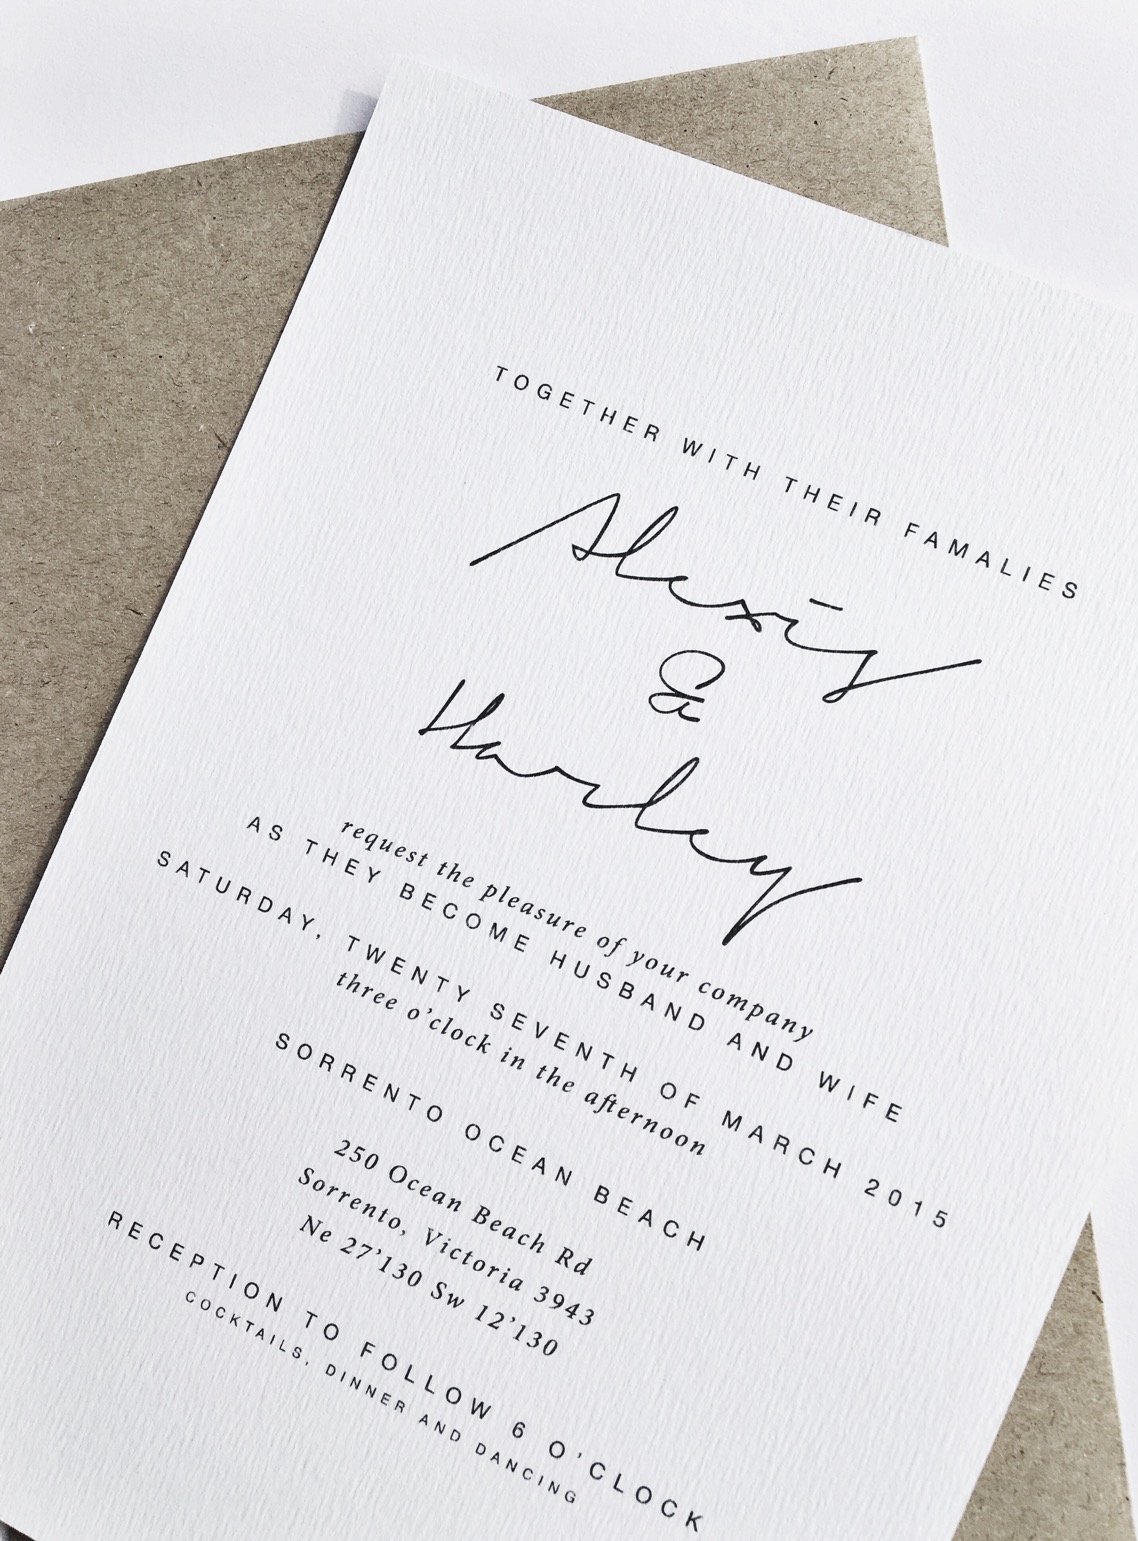 TOGETHER WITH THEIR FAMALIES
Alexis
&
Harley
request the pleasure of your company
AS THEY BECOME HUSBAND AND WIFE
SATURDAY, TWENTY SEVENTH OF MARCH 2015
three o'clock in the afternoon
SORRENTO OCEAN BEACH
250 Ocean Beach Rd
Sorrento, Victoria 3943
Ne 27'130 Sw 12'130
RECEPTION TO FOLLOW 6 O'CLOCK
COCKTAILS, DINNER AND DANCING